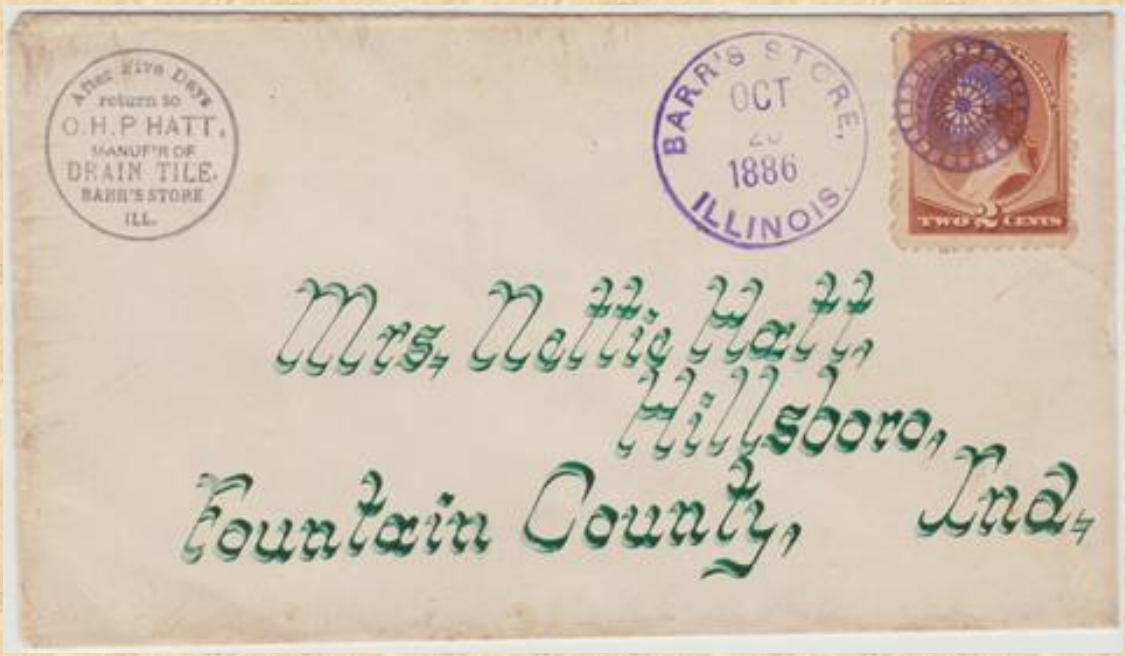 After Five Days
return to
O.H.P HATT,
MANUF'R OF
DRAIN TILE.
BARR'S STORE
ILL.
BARR'S STORE,
OCT
1886
ILLINOIS.
TWO 2 CENTS
Mrs. Nettie Hatt,
Hillsboro,
Fountain County, Ind.